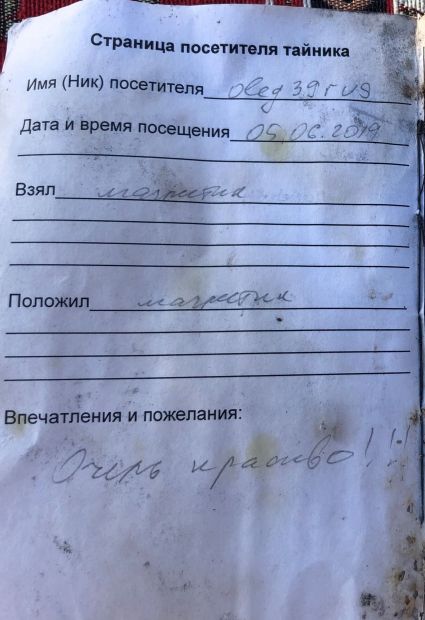 Страница посетителя тайника
Имя (Ник) посетителя oleg39rus
Дата и время посещения 05.06.2019
Взял магнитик
Положил магнитик
Впечатления и пожелания:
Очень красиво!!!